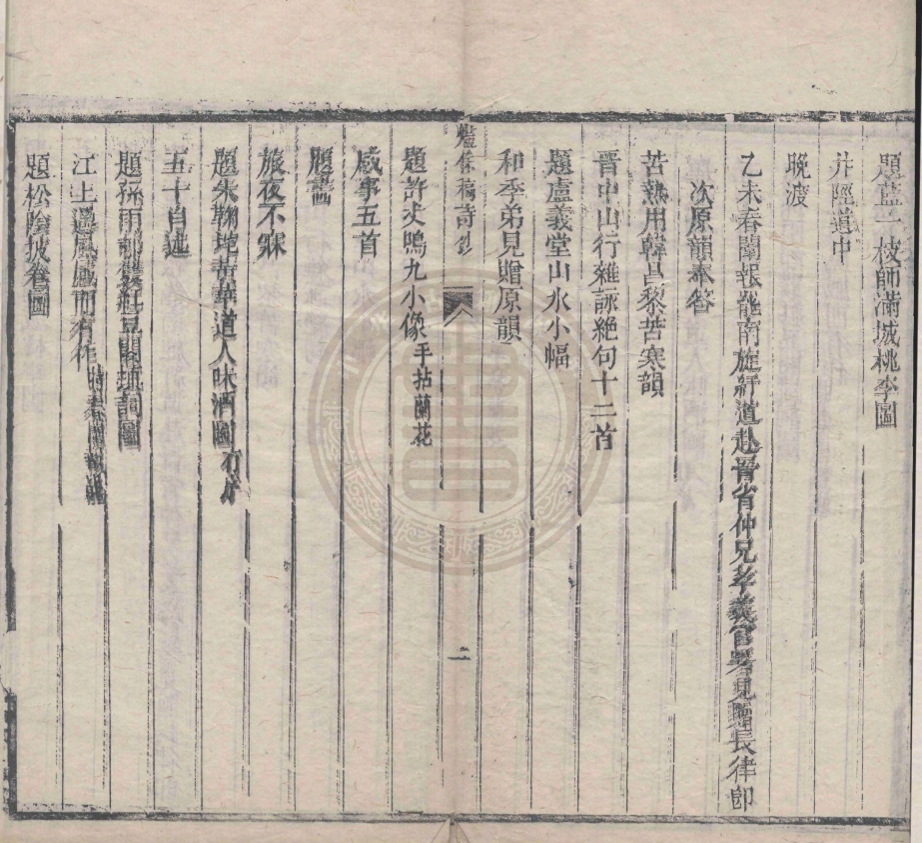 題藍一枝師滿城桃李圖
井陘道中
晚渡
乙未春闈報罷南旋紆道赴晉省仲兄孝義官署見贈長律即
次原韻奉答
苦熱用韓昌黎苦寒韻
晉中山行雜詠絕句十二首
題盧義堂山水小幅
和季弟見贈原韻
詩鈔
二
題許丈鳴九小像手拈蘭花
感事五首
題畫
旅夜不寐
題朱鞠坨黃華道人味酒圖有序
五十自述
題孫雨 雙紅豆閣填詞圖
江上遇風
題松陰披卷圖